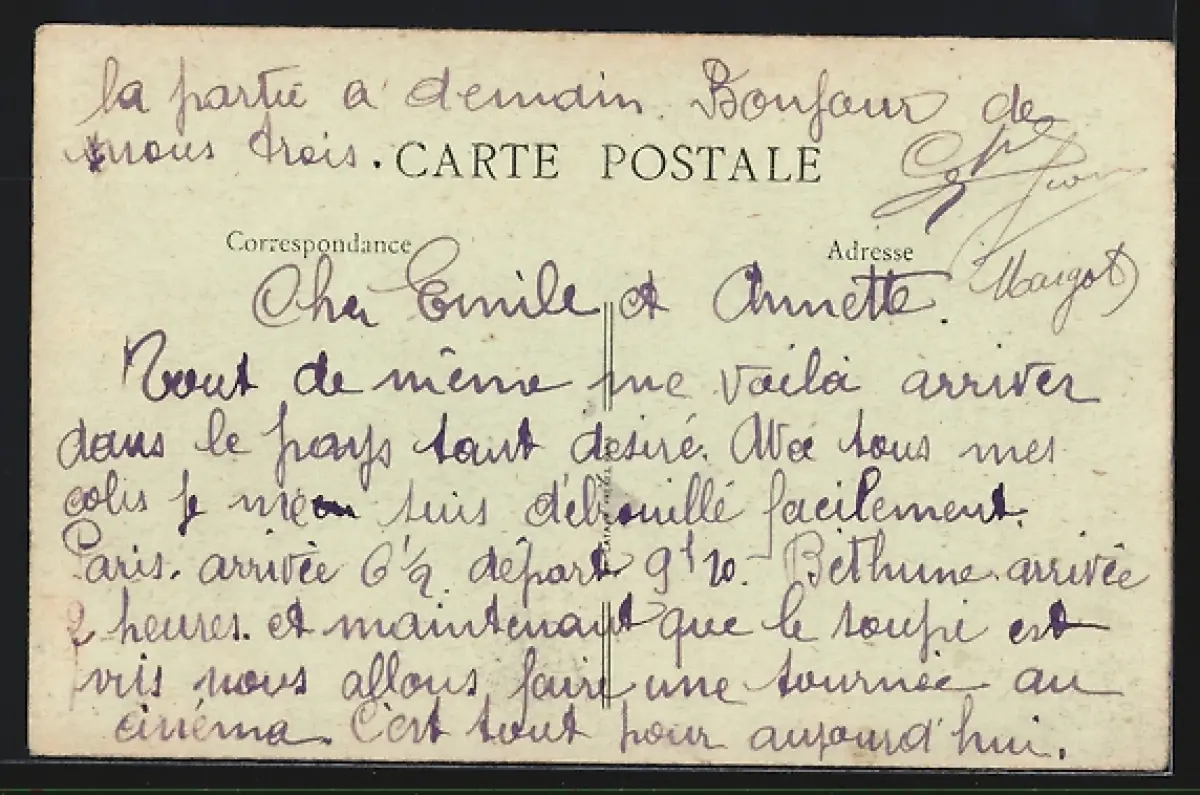 la partie à demain. Bonjour de
nous trois.
CARTE POSTALE
Correspondance
Adresse
Margot
Cher Emile et Annette.
Tout de même me voilà arriver
dans le pays tant désiré. Avec tous mes
colis je me suis débrouillé facilement.
Paris. arrivée 6 1/2 départ 9h 20. Béthune. arrivée
2 heures. et maintenant que le soupé est
pris nous allons faire une tournée au
cinéma. C'est tout pour aujourd'hui.